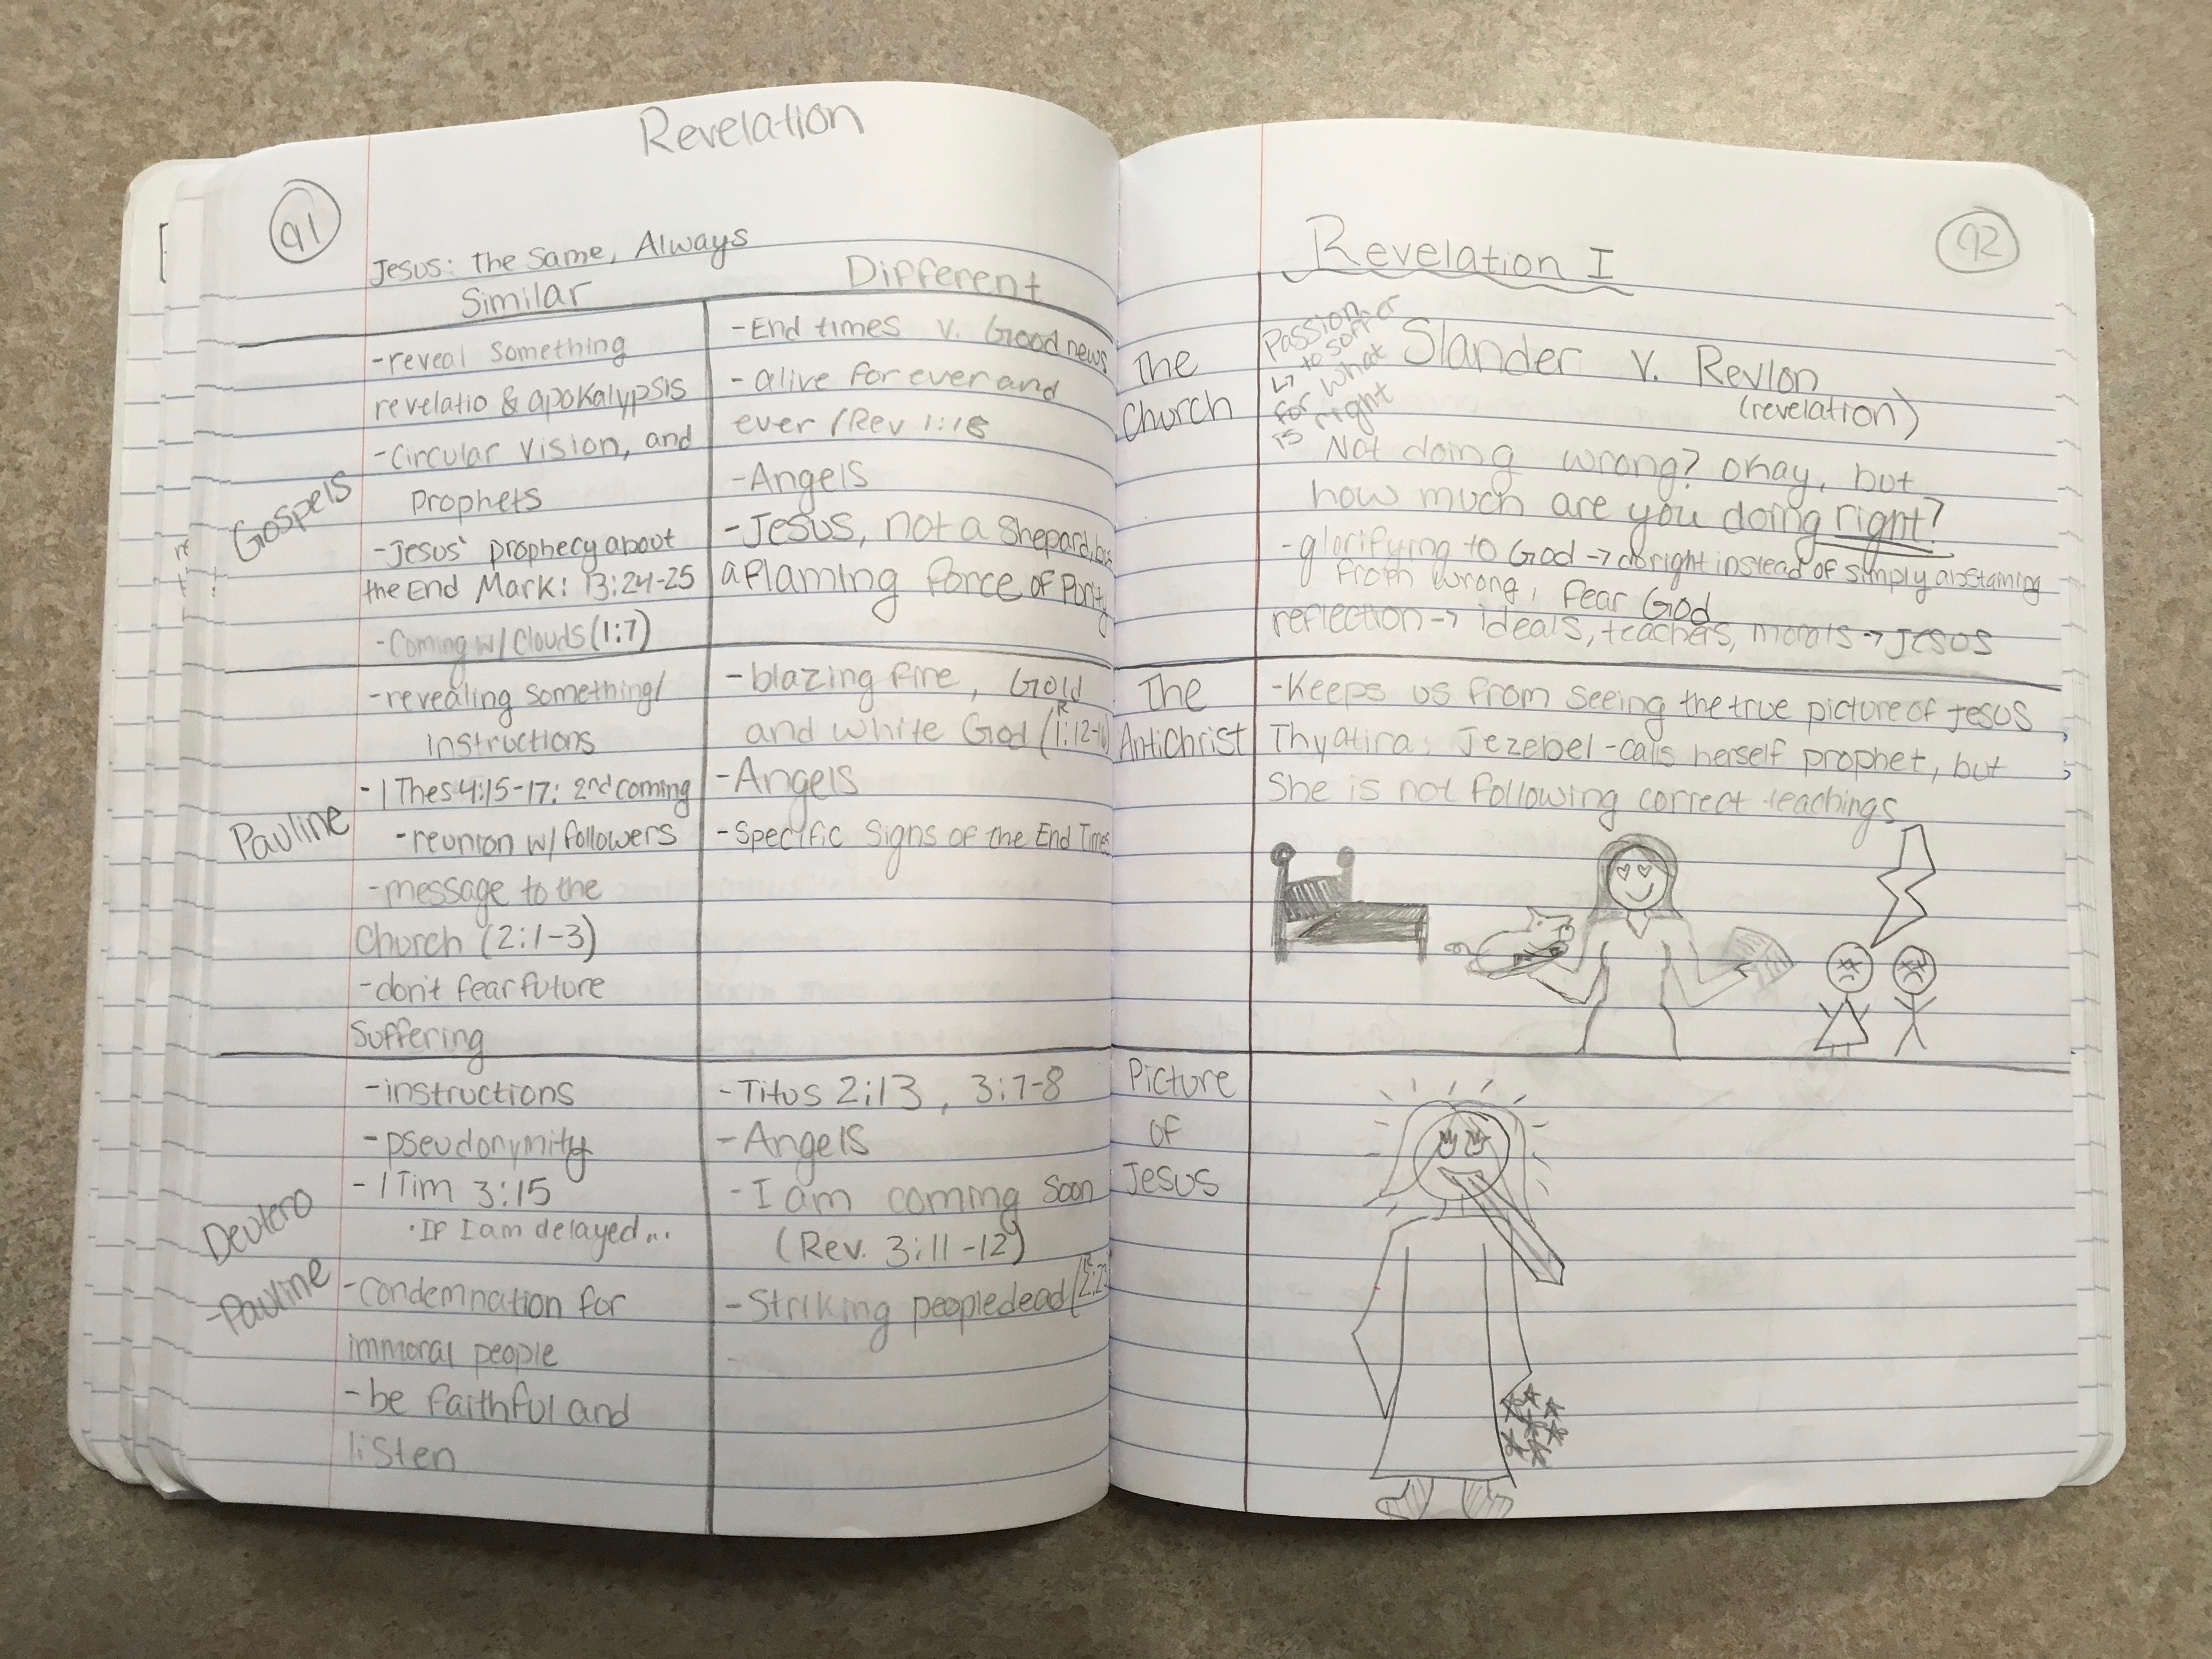 Revelation
91
Jesus: The Same, Always
Similar
Different
Gospels
-reveal something
revelatio & apokalypsis
-Circular Vision, and
Prophets
-Jesus' prophecy about
the End Mark: 13:24-25
-Coming w/ Clouds (1:7)
-End times v. Good news
-alive for ever and
ever (Rev 1:18
-Angels
-Jesus, not a Shepard, but
a flaming force of Purity
Pauline
-revealing something/
instructions
-1 Thes 4:15-17: 2nd coming
-reunion w/ followers
-message to the
Church (2:1-3)
-don't fear future
Suffering
-blazing fire, Gold
and white God (R 1:12-16)
-Angels
-Specific Signs of the End Times
Deutero
-Pauline
-instructions
-pseudonymity
-1 Tim 3:15
·If I am delayed...
-Condemnation for
immoral people
-be faithful and
listen
-Titus 2:13, 3:7-8
-Angels
-I am coming soon
(Rev. 3:11-12)
-Striking people dead
92
Revelation I
The
Church
Passion
↳ to suffer
for what
is right
Slander v. Revlon
(revelation)
Not doing wrong? okay, but
how much are you doing right?
-glorifying to God → do right instead of simply abstaining
from wrong, fear God
reflection → ideals, teachers, morals → JESUS
The
AntiChrist
-Keeps us from seeing the true picture of Jesus
Thyatira: Jezebel-calls herself prophet, but
She is not following correct teachings
Picture
of
Jesus